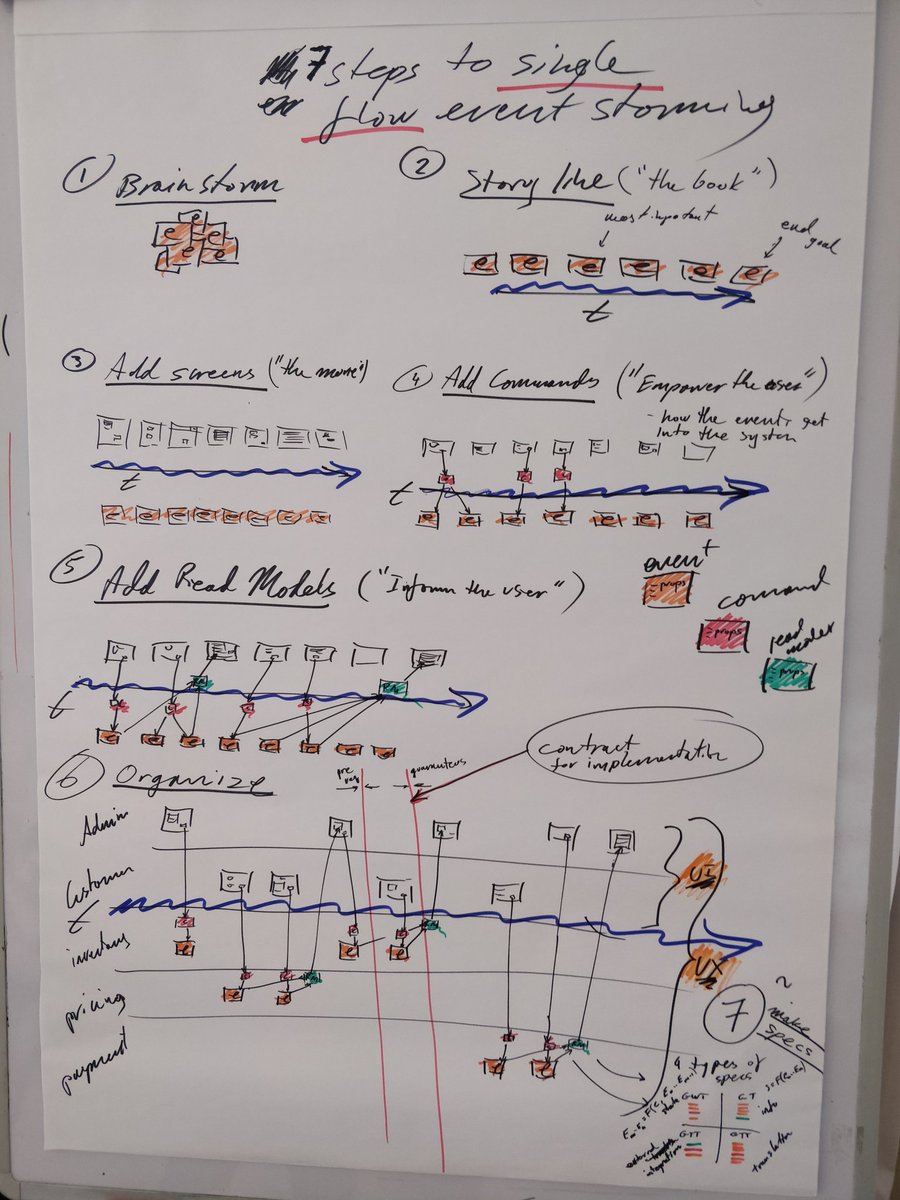 7 steps to single
flow event storming
1 Brainstorm
e
e e
e e
2 Story like ("the book")
most important
end
goal
e e e e e e
t
3 Add screens ("the movie")
t
e e e e e e e e
4 Add Commands ("Empower the user")
- how the events get
into the system
t
e e e e e e e
5 Add Read Models ("Inform the user")
event
props
command
props
read
model
props
t
c c c c
e e e e e e e e
6 Organize
pre
guarantees
contract
for implementation
Admin
Customer
t
inventory
pricing
payment
UI
UX
7
make
specs
4 types of
specs
GWT
GT
state
info
external
integration
translation